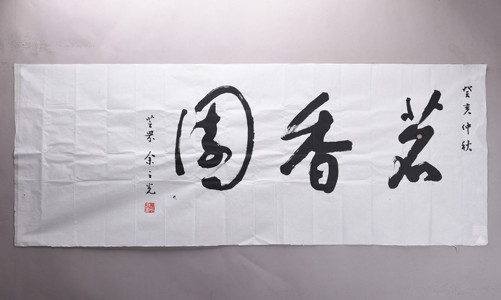 癸亥仲秋
茗香園
余之光